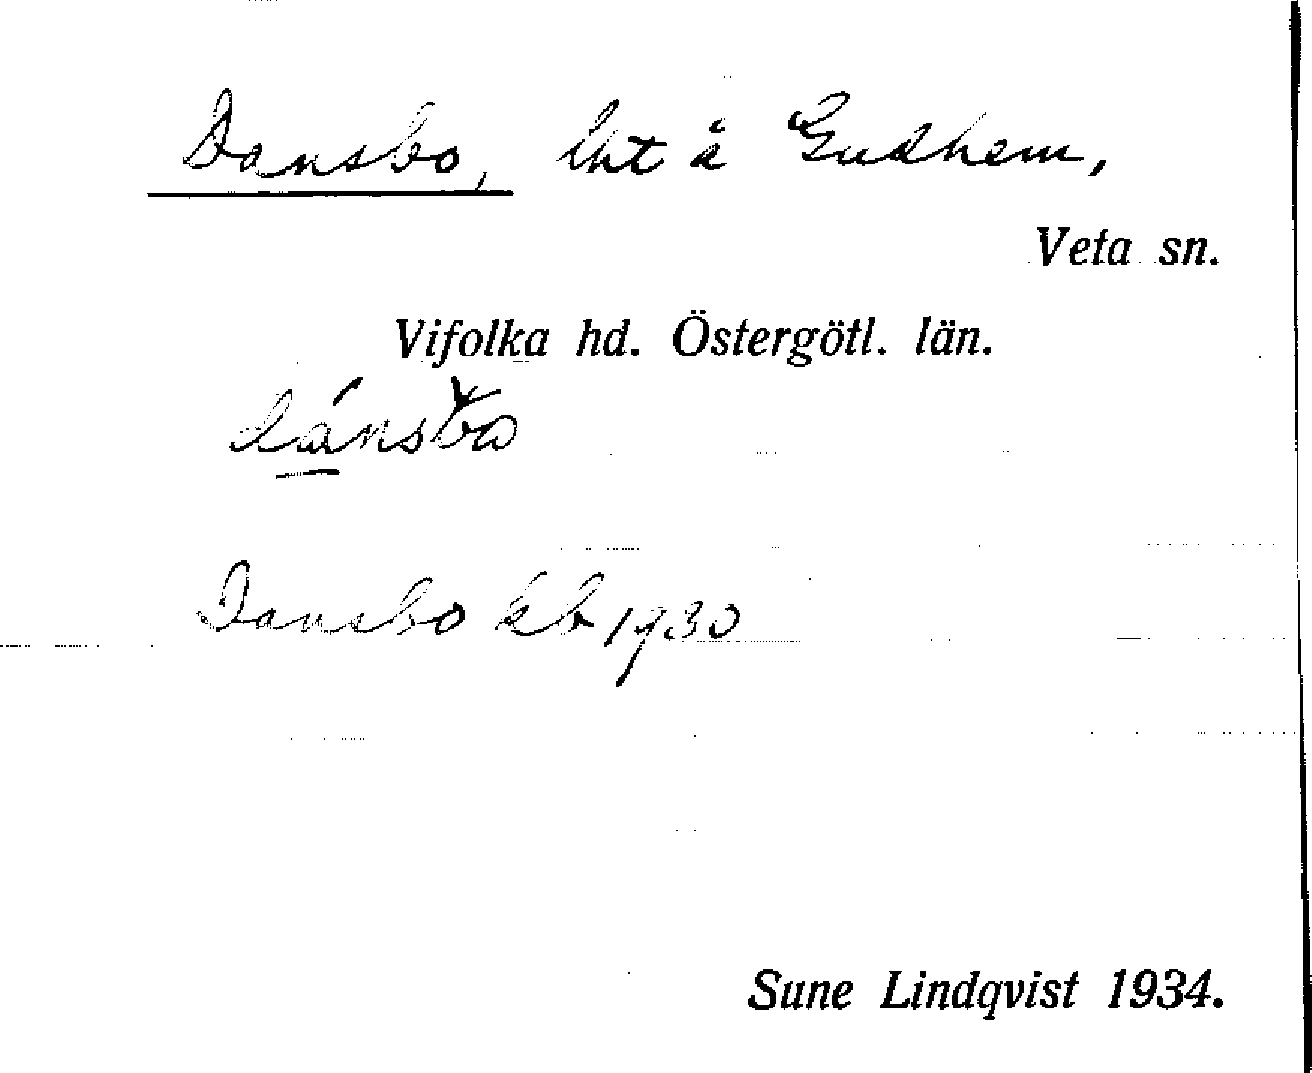 Dansbo, lht å Gudhem,
Veta sn.
Vifolka hd. Östergötl. län.
Dansbo kb 1930
Sune Lindqvist 1934.